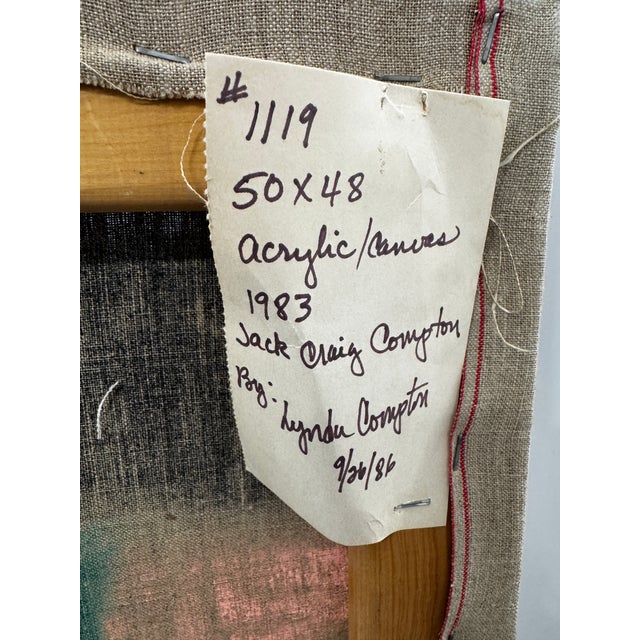 # 1119
50 X 48
acrylic/canvas
1983
Jack Craig Compton
By:
Lynda Compton
9/26/86